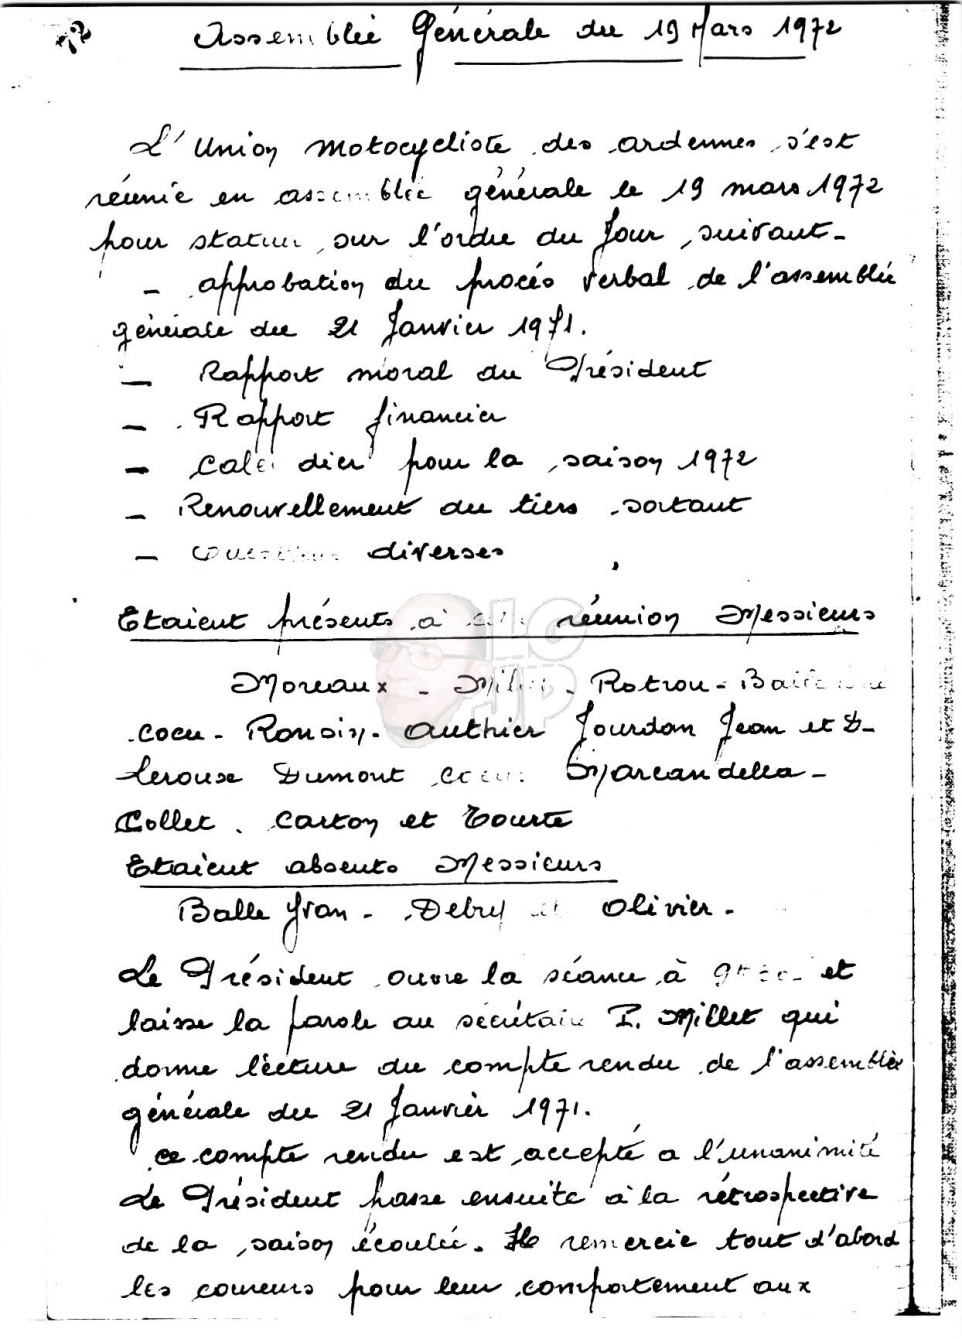 72
Assemblée Générale du 19 Mars 1972
L'Union Motocycliste des ardennes s'est
réunie en assemblée générale le 19 mars 1972
pour statuer sur l'ordre du Jour suivant-
- approbation du procés verbal de l'assemblée
générale du 21 Janvier 1971.
- Rapport moral du Président
- Rapport financier
- Calendrier pour la saison 1972
- Renouvellement du tiers sortant
- Questions diverses
Etaient présents à cette réunion Messieurs
Moreaux - Millet - Rotrou -
Cocu - Ronsin - Authier Jourdan Jean et D-
Lerouse Dumont Marcandella -
Collet. Carton et Tourte
Etaient absents Messieurs
Balle Yvan - Debry et Olivier -
Le Président ouvre la séance à et
laisse la parole au sécrétaire P. Millet qui
donne lécture du compte rendu de l'assemblée
générale du 21 Janvier 1971.
ce compte rendu est accepté a l'unanimité
Le Président passe ensuite à la rétrospective
de la saison écoulée. Il remercie tout d'abord
les coureurs pour leur comportement aux
LG
JP